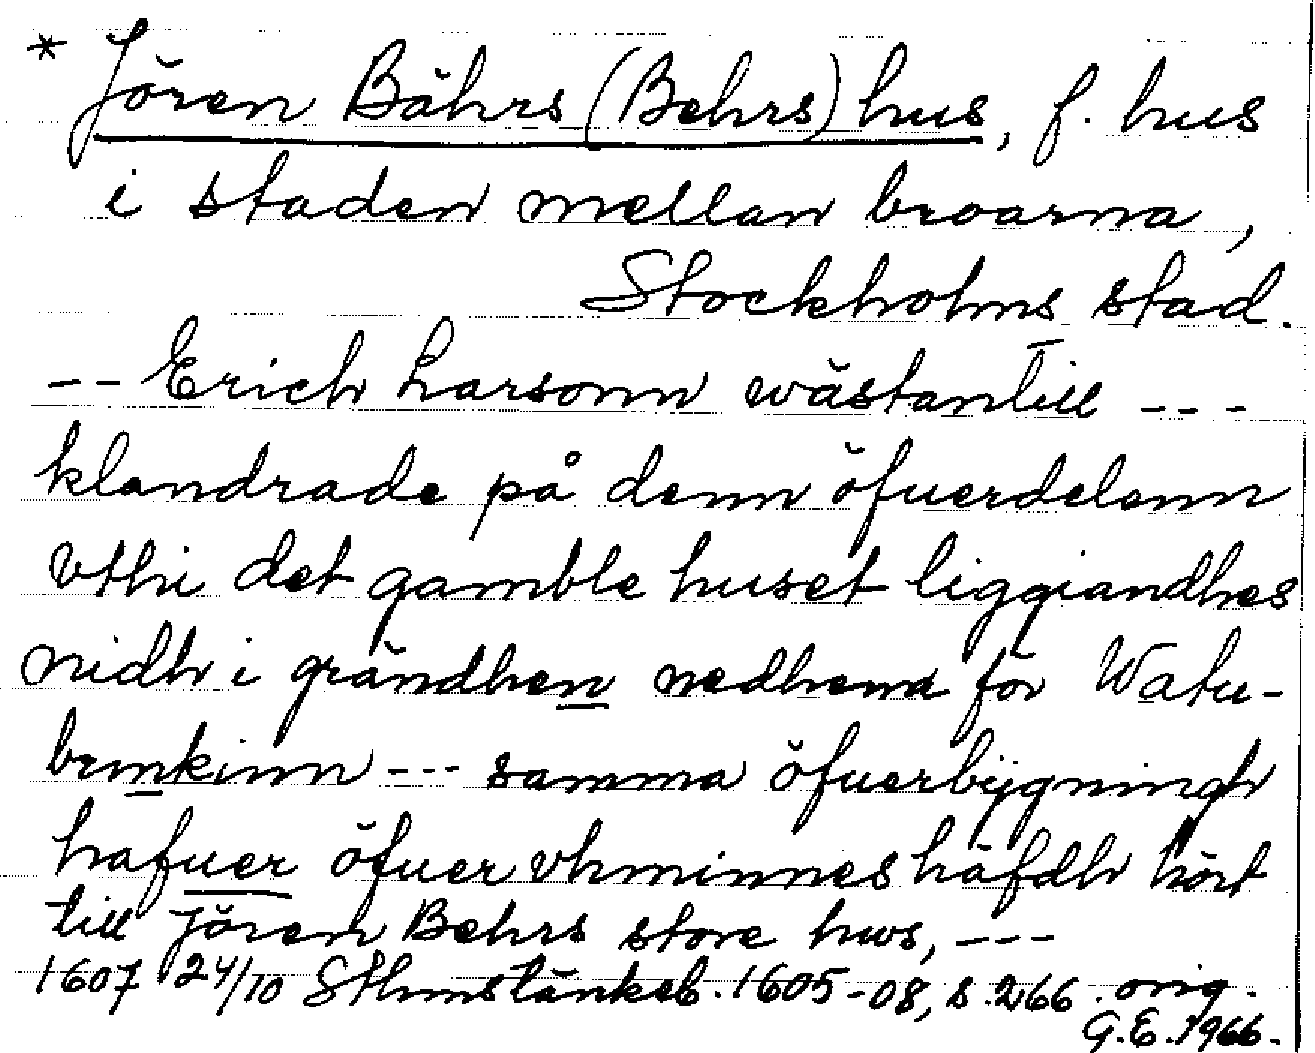 * Jören Bährs (Behrs) hus, f. hus
i staden mellan broarna,
Stockholms stad.
-- Erich Larsonn wästantill ---
klandrade på denn öfuerdelenn
vthi det gamble huset liggiandhes
nidh i grändhen nedhenn för Watu-
brinkinn --- samma öfuerbÿgningh
hafuer öfuer vhrminnes häfdh hört
till Jören Behrs store hws, ---
1607 24/10 Sthmstänkeb. 1605-08, s. 266. orig.
G.E. 1966.